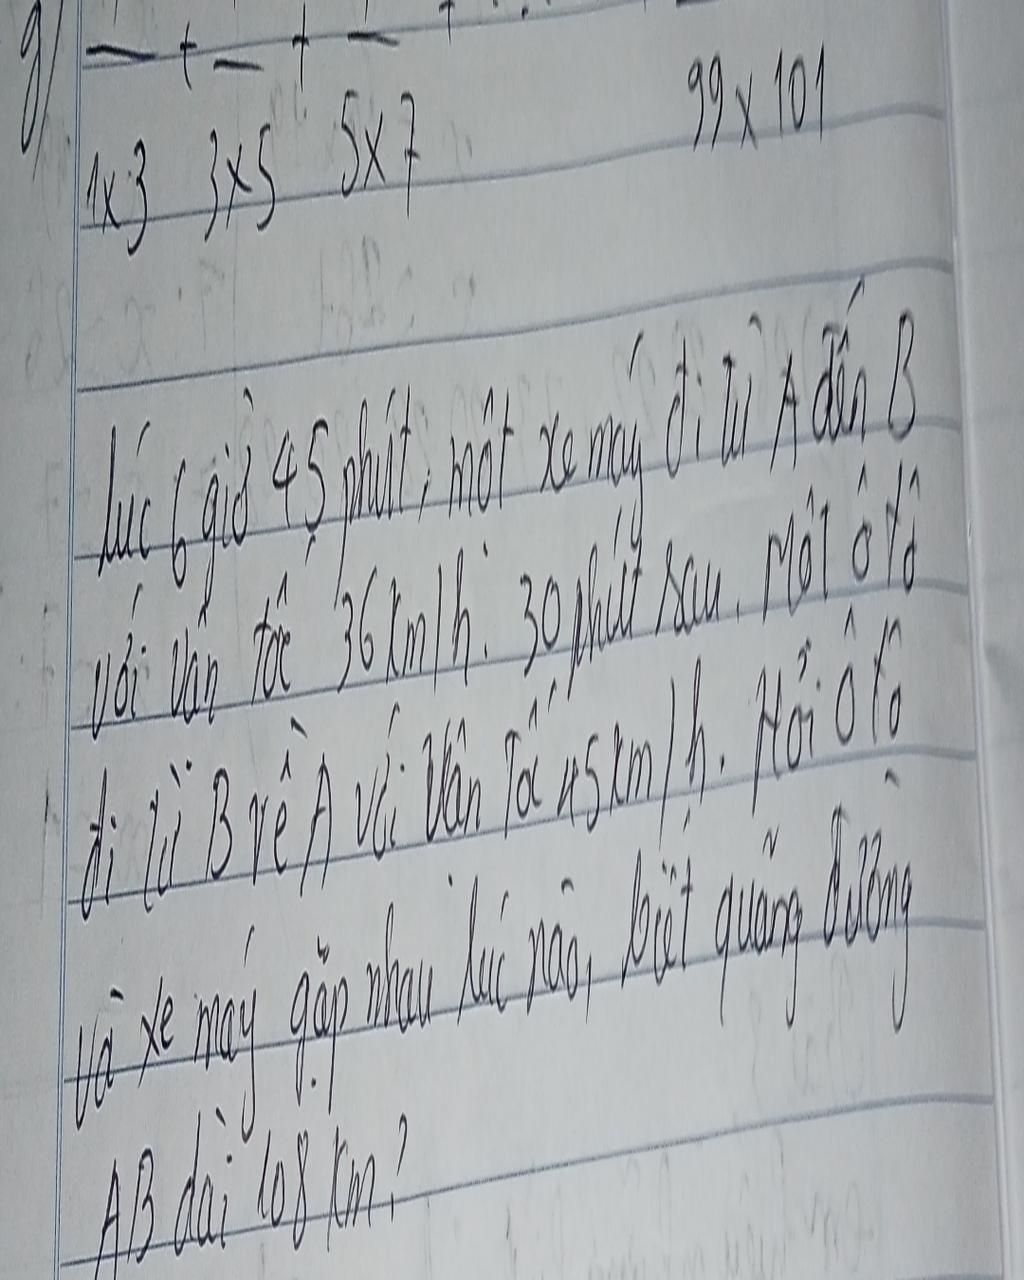 g) — + — + — + ...
1x3 3x5 5x7 99 x 101
Lúc 6 giờ 45 phút, một xe máy đi từ A đến B
với vận tốc 36 km/h. 30 phút sau. Một ô tô
đi từ B về A với vận tốc 45 km/h. Hỏi ô tô
và xe máy gặp nhau lúc nào, biết quãng đường
AB dài 108 km?